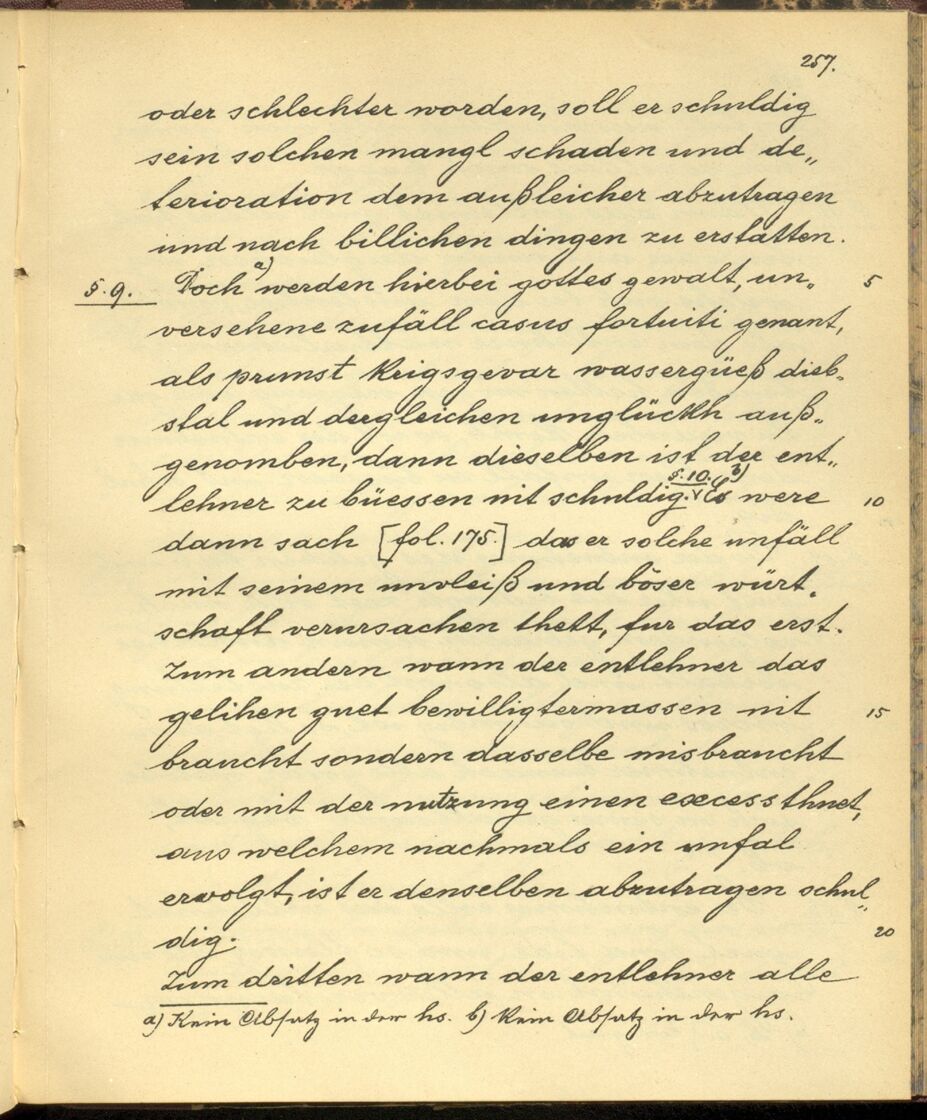 257.
oder schlechter worden, soll er schuldig
sein solchen mangl schaden und de„
terioration dem außleicher abzutragen
und nach billichen dingen zu erstatten.
§. 9. Doch a) werden hierbei gottes gewalt, un„ 5
versehene zufäll casus fortuiti genant,
als prunst krigsgevar wassergüeß dieb„
stal und dergleichen unglückh auß„
genomben, dann dieselben ist der ent„
lehner zu büessen nit schuldig. §. 10. Es b) were 10
dann sach [fol. 175.] das er solche unfäll
mit seinem unvleiß und böser würt„
schaft verursachen thett, fur das erst.
Zum andern wann der entlehner das
gelihen guet bewilligtermassen nit 15
braucht sondern dasselbe misbraucht
oder mit der nutzung einen excess thuet,
aus welchem nachmals ein unfal
ervolgt, ist er denselben abzutragen schul„
dig. 20
Zum dritten wann der entlehner alle
a) Kein Absatz in der hs. b) Kein Absatz in der hs.